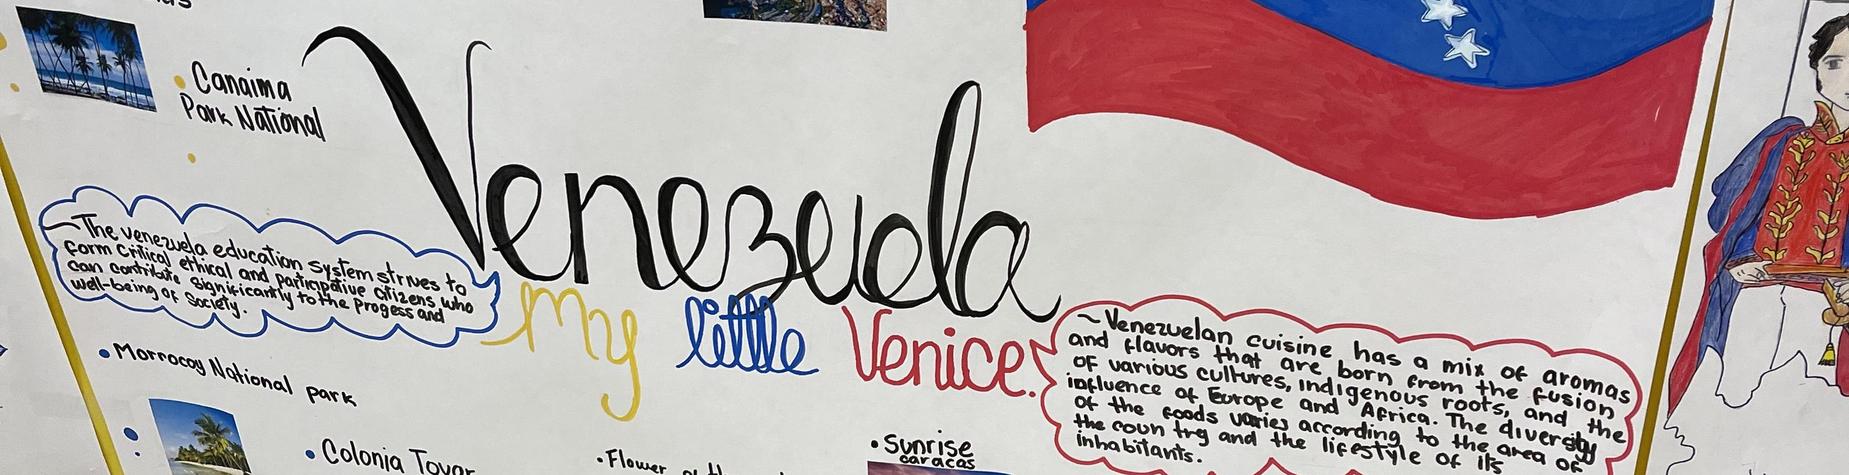 Canaima
Park National
Venezuela
My little Venice.
~ The venezuela education system strives to
form critical ethical and participative citizens who
can contribute significantly to the progess and
well-being of society.
~ Venezuelan cuisine has a mix of aromas
and flavors that are born from the fusion
of various cultures, indigenous roots, and the
influence of Europe and Africa. The diversity
of the foods varies according to the area of
the country and the lifestyle of its
inhabitants.
• Morrocoy National park
• Colonia Tovar
• Flower
• Sunrise
caracas